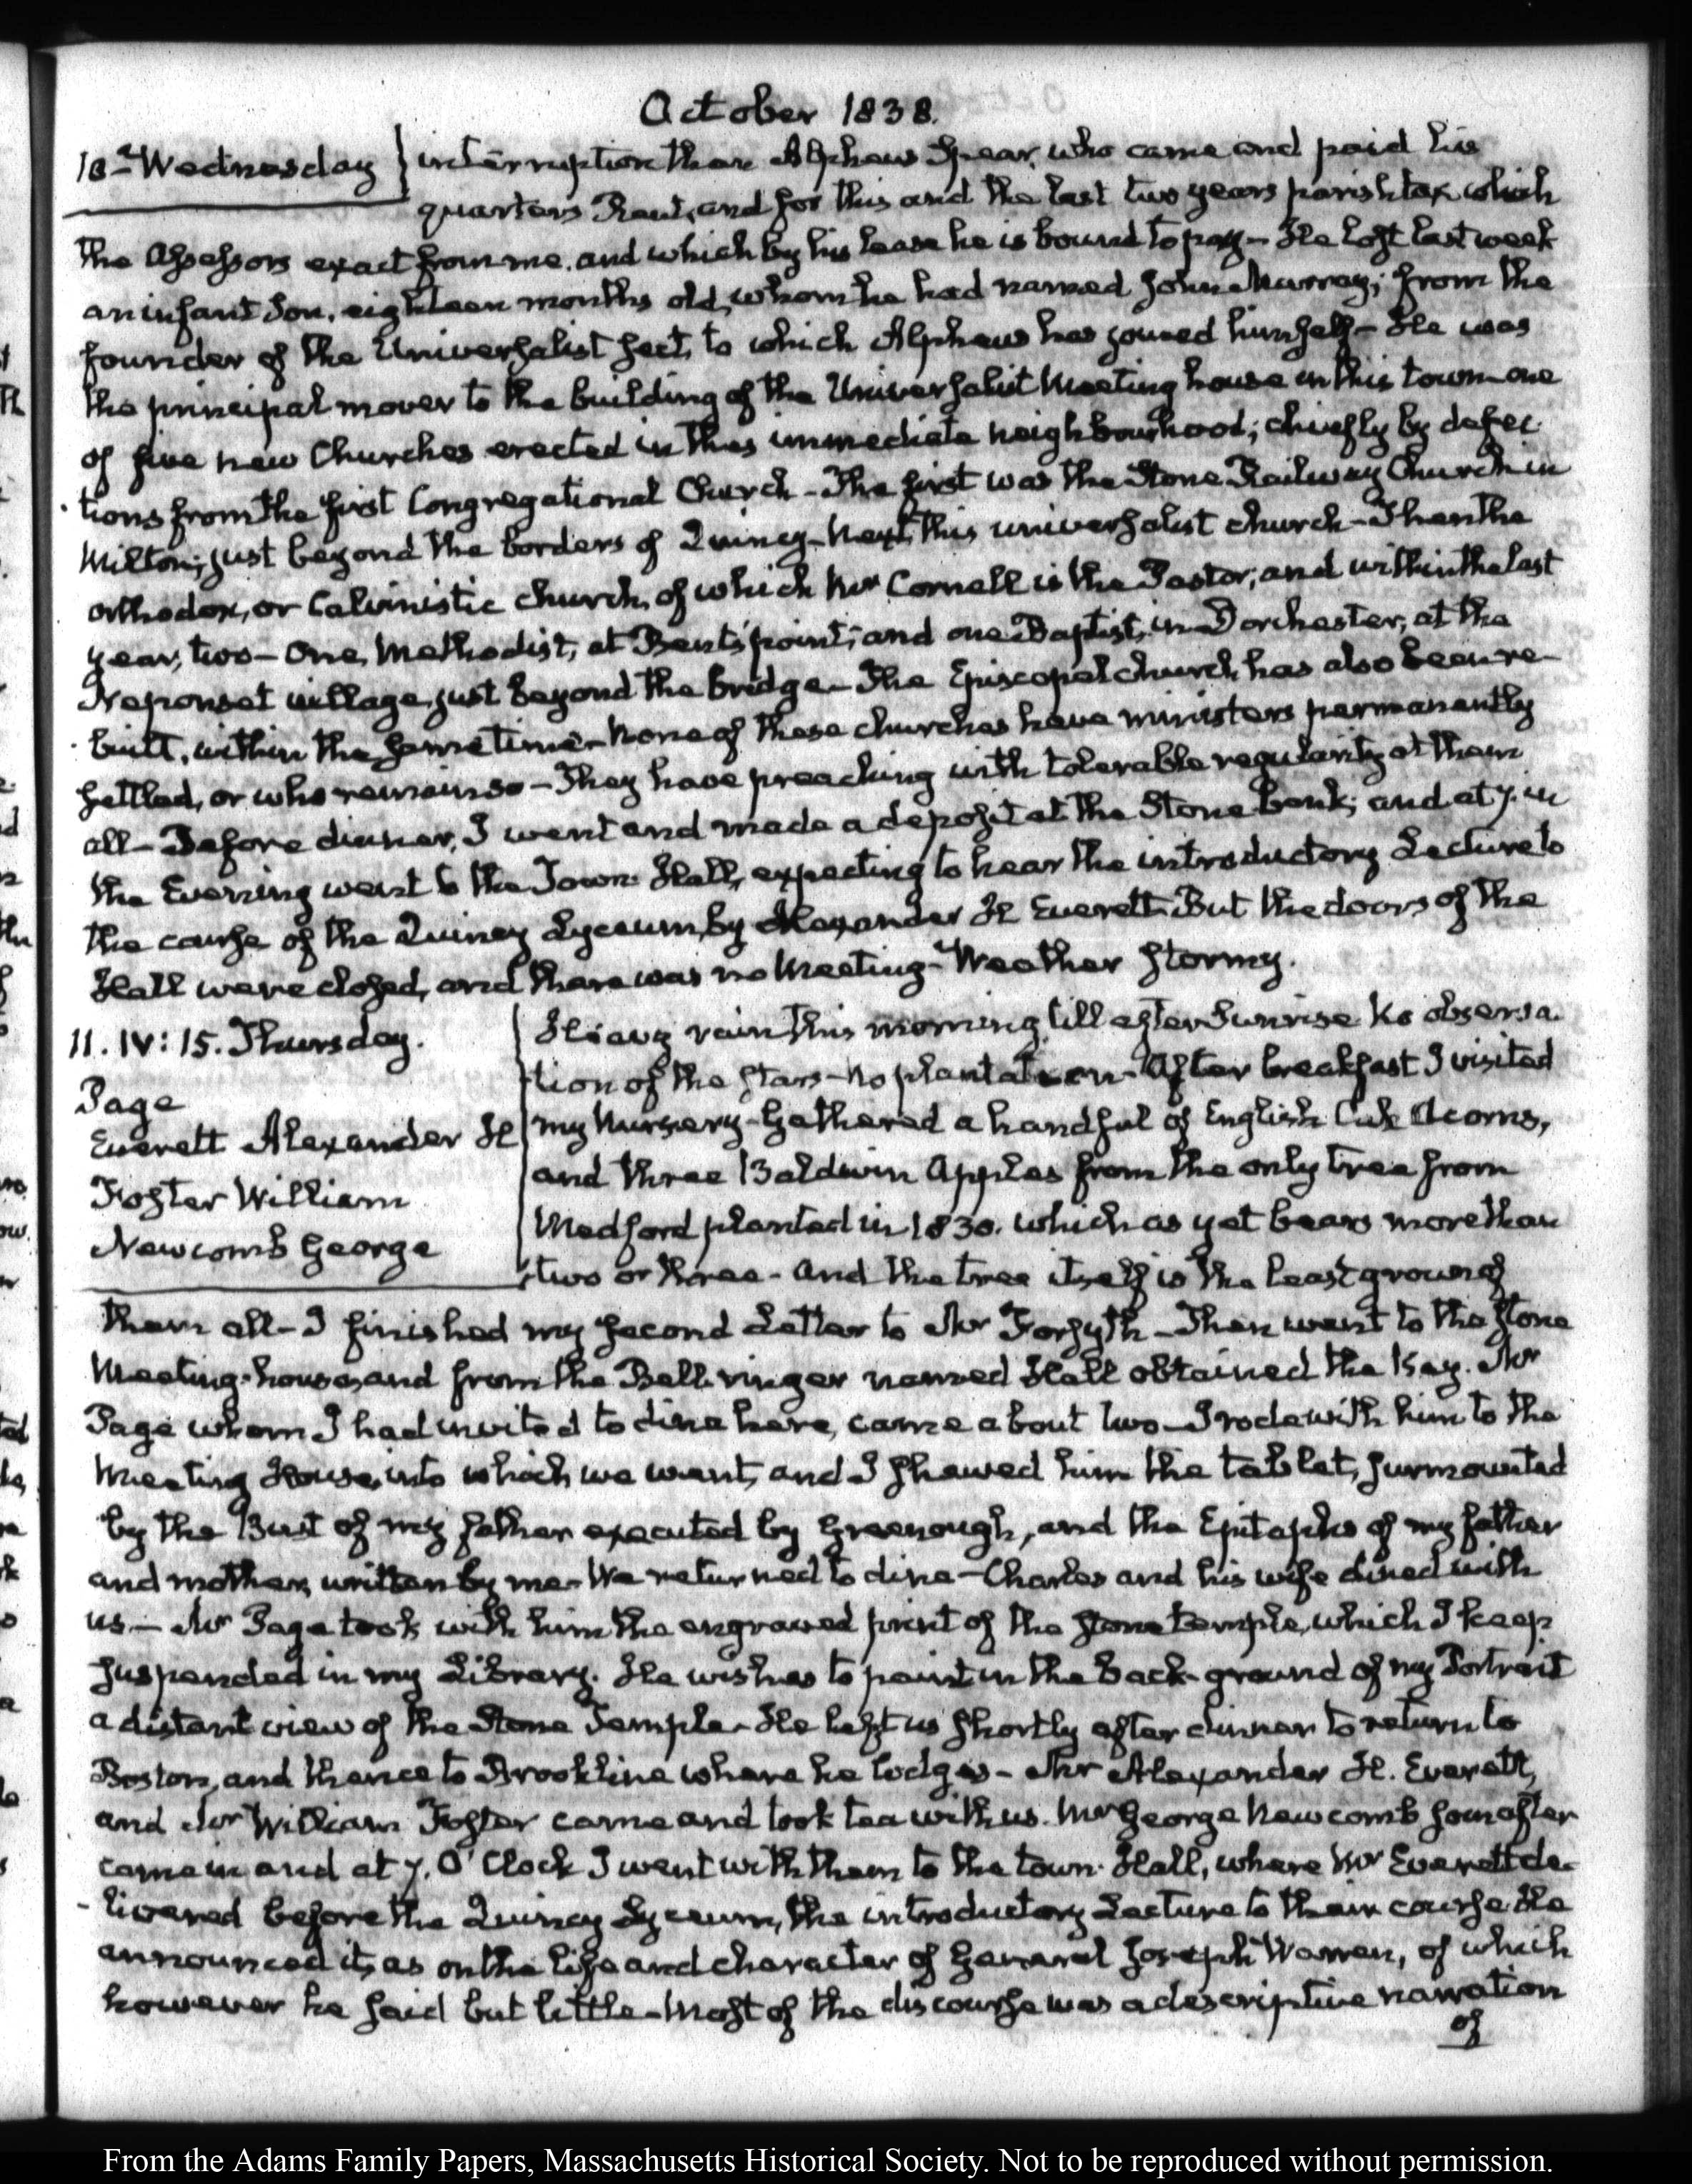 October 1838.
10. Wednesday } interruption than Alpheus Spear, who came and paid his
quarters Rent, and for this and the last two years parish tax which
the Assessors exact from me, and which by his lease he is bound to pay – He lost last week
an infant Son, eighteen months old, whom he had named John Murray; from the
founder of the Universalist sect, to which Alpheus has joined himself – He was
the principal mover to the building of the Universalist Meeting house in this town – one
of five new Churches erected in this immediate neighbourhood; chiefly by defec-
tions from the first Congregational Church – The first was the Stone Railway Church in
Milton; just beyond the borders of Quincy – Next, this universalist church – Then the
orthodox, or Calvinistic church, of which Mr Cornell is the Pastor; and within the last
year, two – One, Methodist, at Bent's point; and one Baptist, in Dorchester, at the
Neponset village, just beyond the bridge – The Episcopal church has also been re-
built, within the same time – None of these churches have ministers permanently
settled, or who remain so – They have preaching with tolerable regularity at them
all – Before dinner, I went and made a deposit at the Stone bank; and at 7. in
the Evening went to the Town Hall, expecting to hear the introductory Lecture to
the course of the Quincy Lyceum, by Alexander H Everett. But the doors of the
Hall were closed, and there was no Meeting – Weather stormy.
11. IV: 15. Thursday.
Page
Everett Alexander H
Foster William
Newcomb George
Heavy rain this morning, till after Sunrise. No observa-
tion of the stars – no plantation – After breakfast I visited
my Nursery – Gathered a handful of English Oak Acorns,
and three Baldwin Apples from the only tree from
Medford planted in 1830. which as yet bears more than
two or three – and the tree itself is the least grown of
them all – I finished my second Letter to Mr Forsyth – Then went to the stone
Meeting-house, and from the Bell-ringer named Hall obtained the Key. Mr
Page whom I had invited to dine here, came about two – I rode with him to the
Meeting House, into which we went, and I shewed him the tablet, surmounted
by the Bust of my father executed by Greenough, and the Epitaphs of my father
and mother, written by me – We returned to dine – Charles and his wife dined with
us – Mr Page took with him the engraved print of the stone temple, which I keep
suspended in my Library. He wishes to paint in the back-ground of my Portrait
a distant view of the Stone Temple – He left us shortly after dinner to return to
Boston, and thence to Brookline where he lodges – Mr Alexander H. Everett,
and Mr William Foster came and took tea with us. Mr George Newcomb soon after
came in and at 7. O'Clock I went with them to the town-Hall, where Mr Everett de-
livered before the Quincy Lyceum, the introductory Lecture to their course. He
announced it, as on the life and character of General Joseph Warren, of which
however he said but little – Most of the discourse was a descriptive narration
of
From the Adams Family Papers, Massachusetts Historical Society. Not to be reproduced without permission.